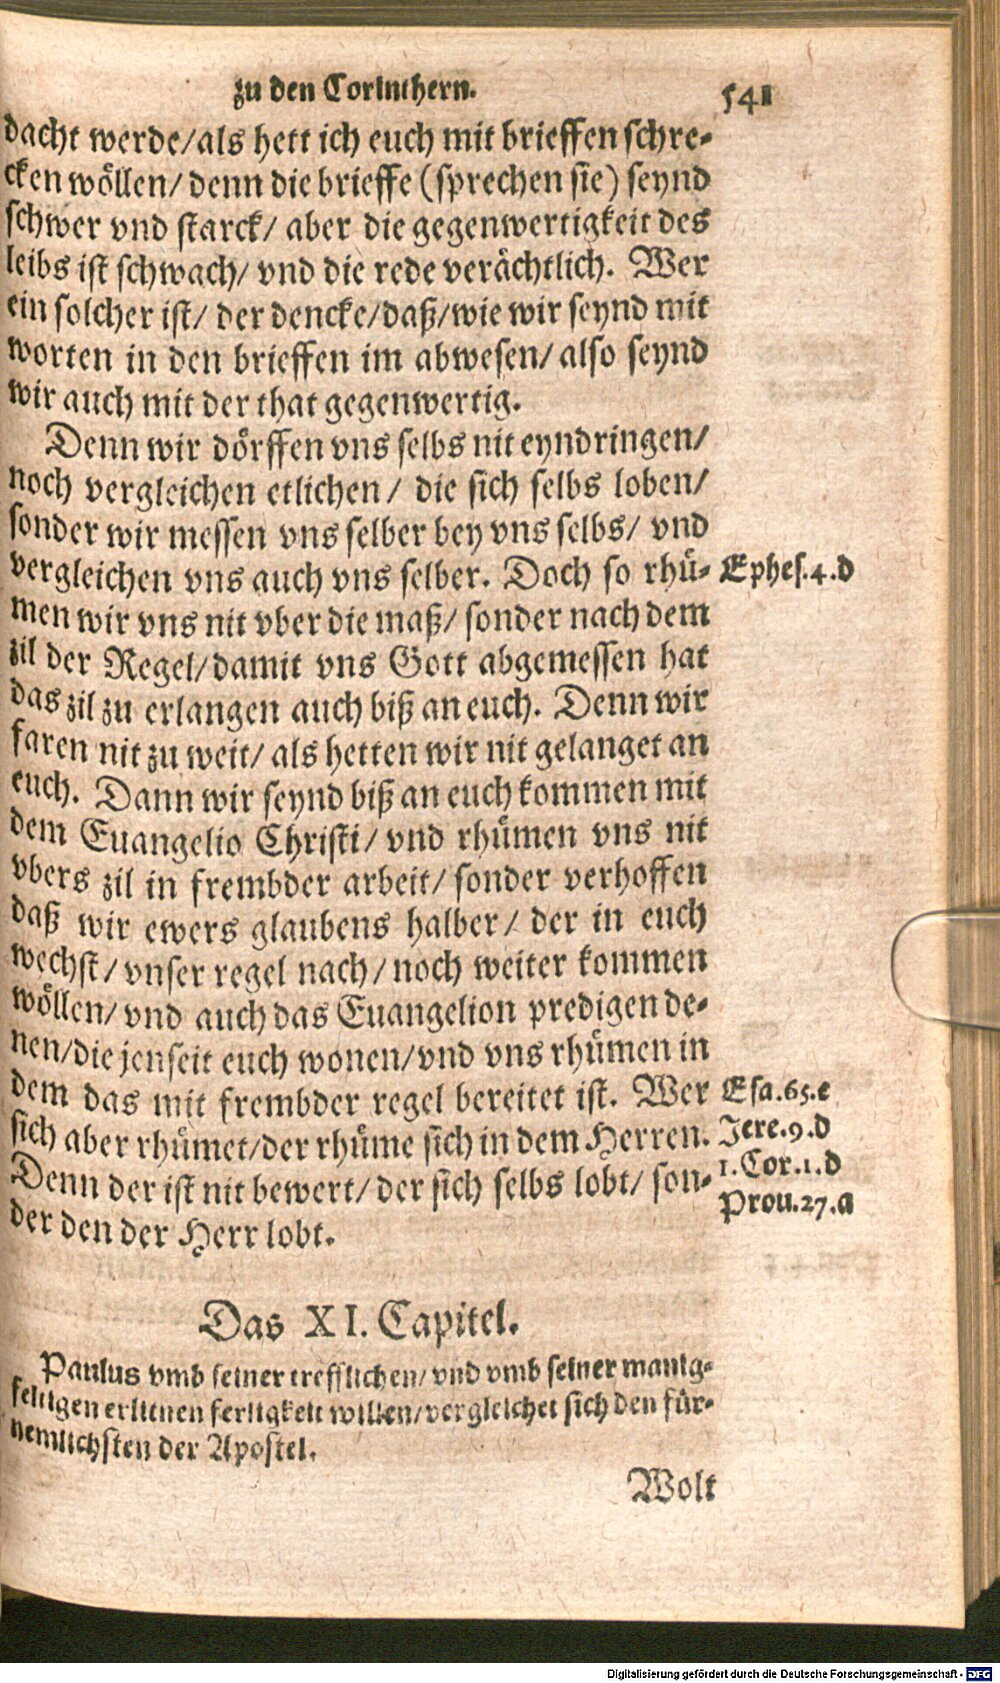 zu den Corinthern. 541
dacht werde/als hett ich euch mit brieffen schre-
cken wöllen/ denn die brieffe (sprechen sie) seynd
schwer vnd starck/ aber die gegenwertigkeit des
leibs ist schwach/ vnd die rede verächtlich. Wer
ein solcher ist/ der dencke/daß/wie wir seynd mit
worten in den brieffen im abwesen/ also seynd
wir auch mit der that gegenwertig.
Denn wir dörffen vns selbs nit eyndringen/
noch vergleichen etlichen/ die sich selbs loben/
sonder wir messen vns selber bey vns selbs/ vnd
vergleichen vns auch vns selber. Doch so rhü- Ephes.4.d
men wir vns nit vber die maß/ sonder nach dem
zil der Regel/damit vns Gott abgemessen hat
das zil zu erlangen auch biß an euch. Denn wir
faren nit zu weit/ als hetten wir nit gelanget an
euch. Dann wir seynd biß an euch kommen mit
dem Euangelio Christi/ vnd rhümen vns nit
vbers zil in frembder arbeit/ sonder verhoffen
daß wir ewers glaubens halber/ der in euch
wechst/ vnser regel nach/ noch weiter kommen
wöllen/ vnd auch das Euangelion predigen de-
nen/die jenseit euch wonen/vnd vns rhümen in
dem das mit frembder regel bereitet ist. Wer Esa.65.c
sich aber rhümet/der rhüme sich in dem Herren. Jere.9.d
Denn der ist nit bewert/ der sich selbs lobt/ son- 1.Cor.1.d
der den der Herr lobt. Prou.27.a
Das XI. Capitel.
Paulus vmb seiner trefflichen/ vnd vmb seiner manig-
feltigen erlittnen fertigkeit willen/vergleichet sich den für-
nemlichsten der Apostel.
Wolt
Digitalisierung gefördert durch die Deutsche Forschungsgemeinschaft - DFG